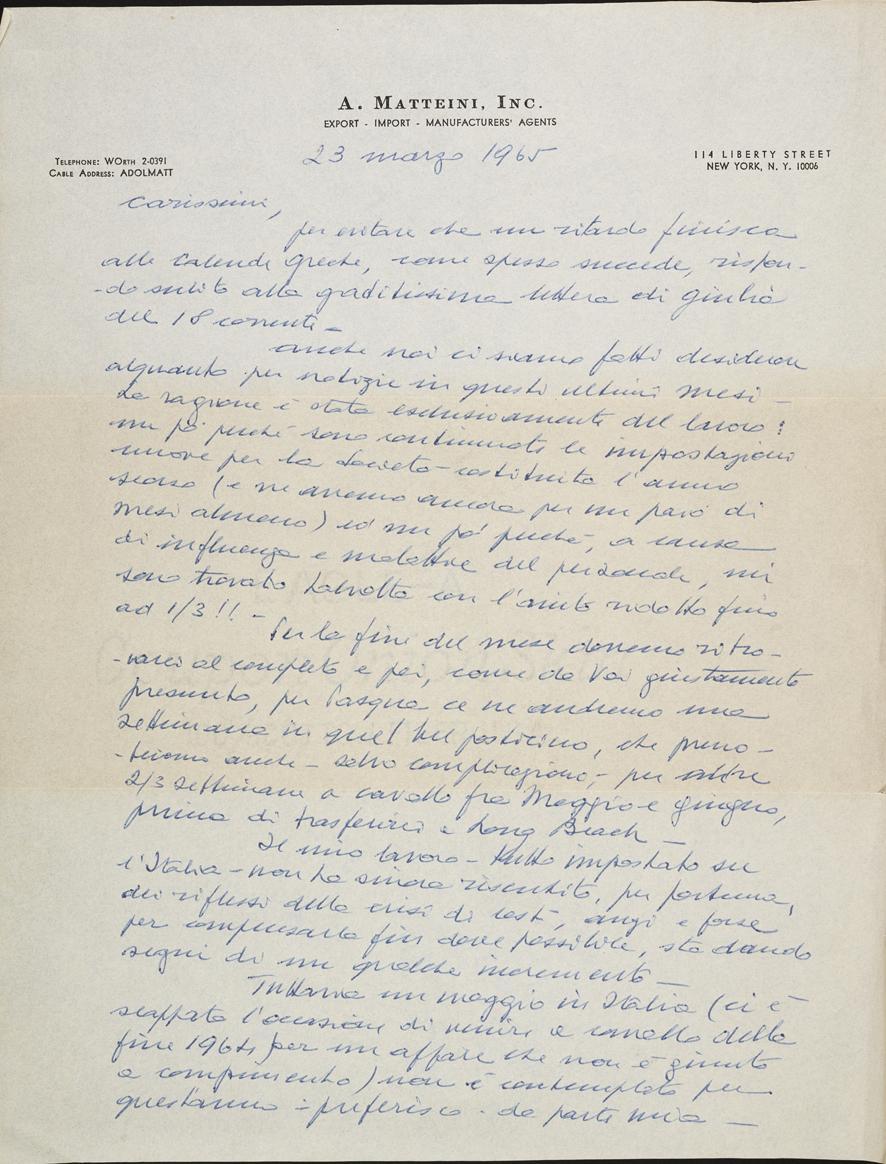 A. MATTEINI, INC.
EXPORT - IMPORT - MANUFACTURERS' AGENTS
TELEPHONE: WORTH 2-0391
CABLE ADDRESS: ADOLMATT
114 LIBERTY STREET
NEW YORK, N. Y. 10006
23 marzo 1965
Carissimi,
per evitare che un ritardo finisca
alle Calende Greche, come spesso succede, rispon-
-do subito alla graditissima lettera di Giulio
del 18 corrente -
Anche noi ci siamo fatti desiderare
alquanto per notizie in questi ultimi mesi -
La ragione è stata esclusivamente del lavoro:
un po' perché sono continuate le impostazioni
nuove per la Società costituita l'anno
scorso (e ne avremo ancora per un paio di
mesi almeno) ed un po' perché, a causa
di influenza e malattie del personale, mi
sono trovato talvolta con l'aiuto ridotto fino
ad 1/3!! -
Per la fine del mese dovremo ritro-
-varci al completo e poi, come da Voi giustamente
presunto, per Pasqua ce ne andremo una
settimana in quel bel posticino, che preno-
-teremo anche - salvo complicazioni - per altre
2/3 settimane a cavallo fra Maggio e Giugno,
prima di trasferirci a Long Beach -
Il mio lavoro - tutto impostato su
l'Italia - non ha sinora risentito, per fortuna,
dei riflessi della crisi di costì, anzi e forse
per compensarla fin dove possibile, sta dando
segni di un qualche incremento -
Tuttavia un viaggio in Italia (ci è
scappata l'occasione di venire a cavallo della
fine 1964 per un affare che non è giunto
a compimento) non è contemplato per
quest'anno - preferisco - da parte mia -